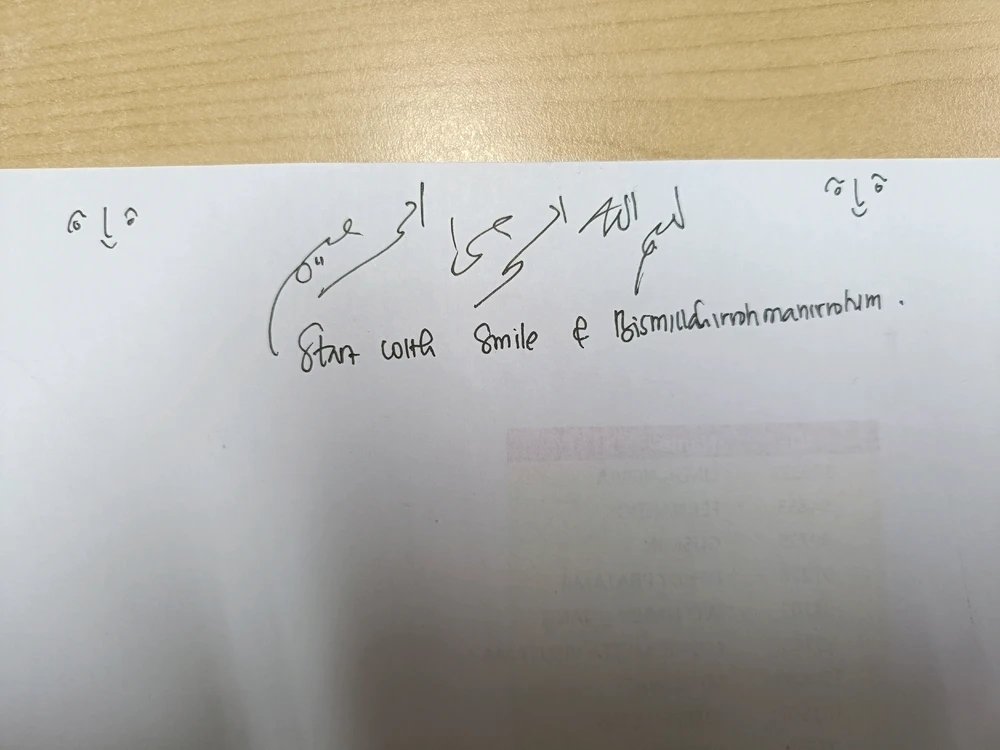 بسم الله الرحمن الرحيم
Start with Smile & Bismillahirrohmanirrohim.